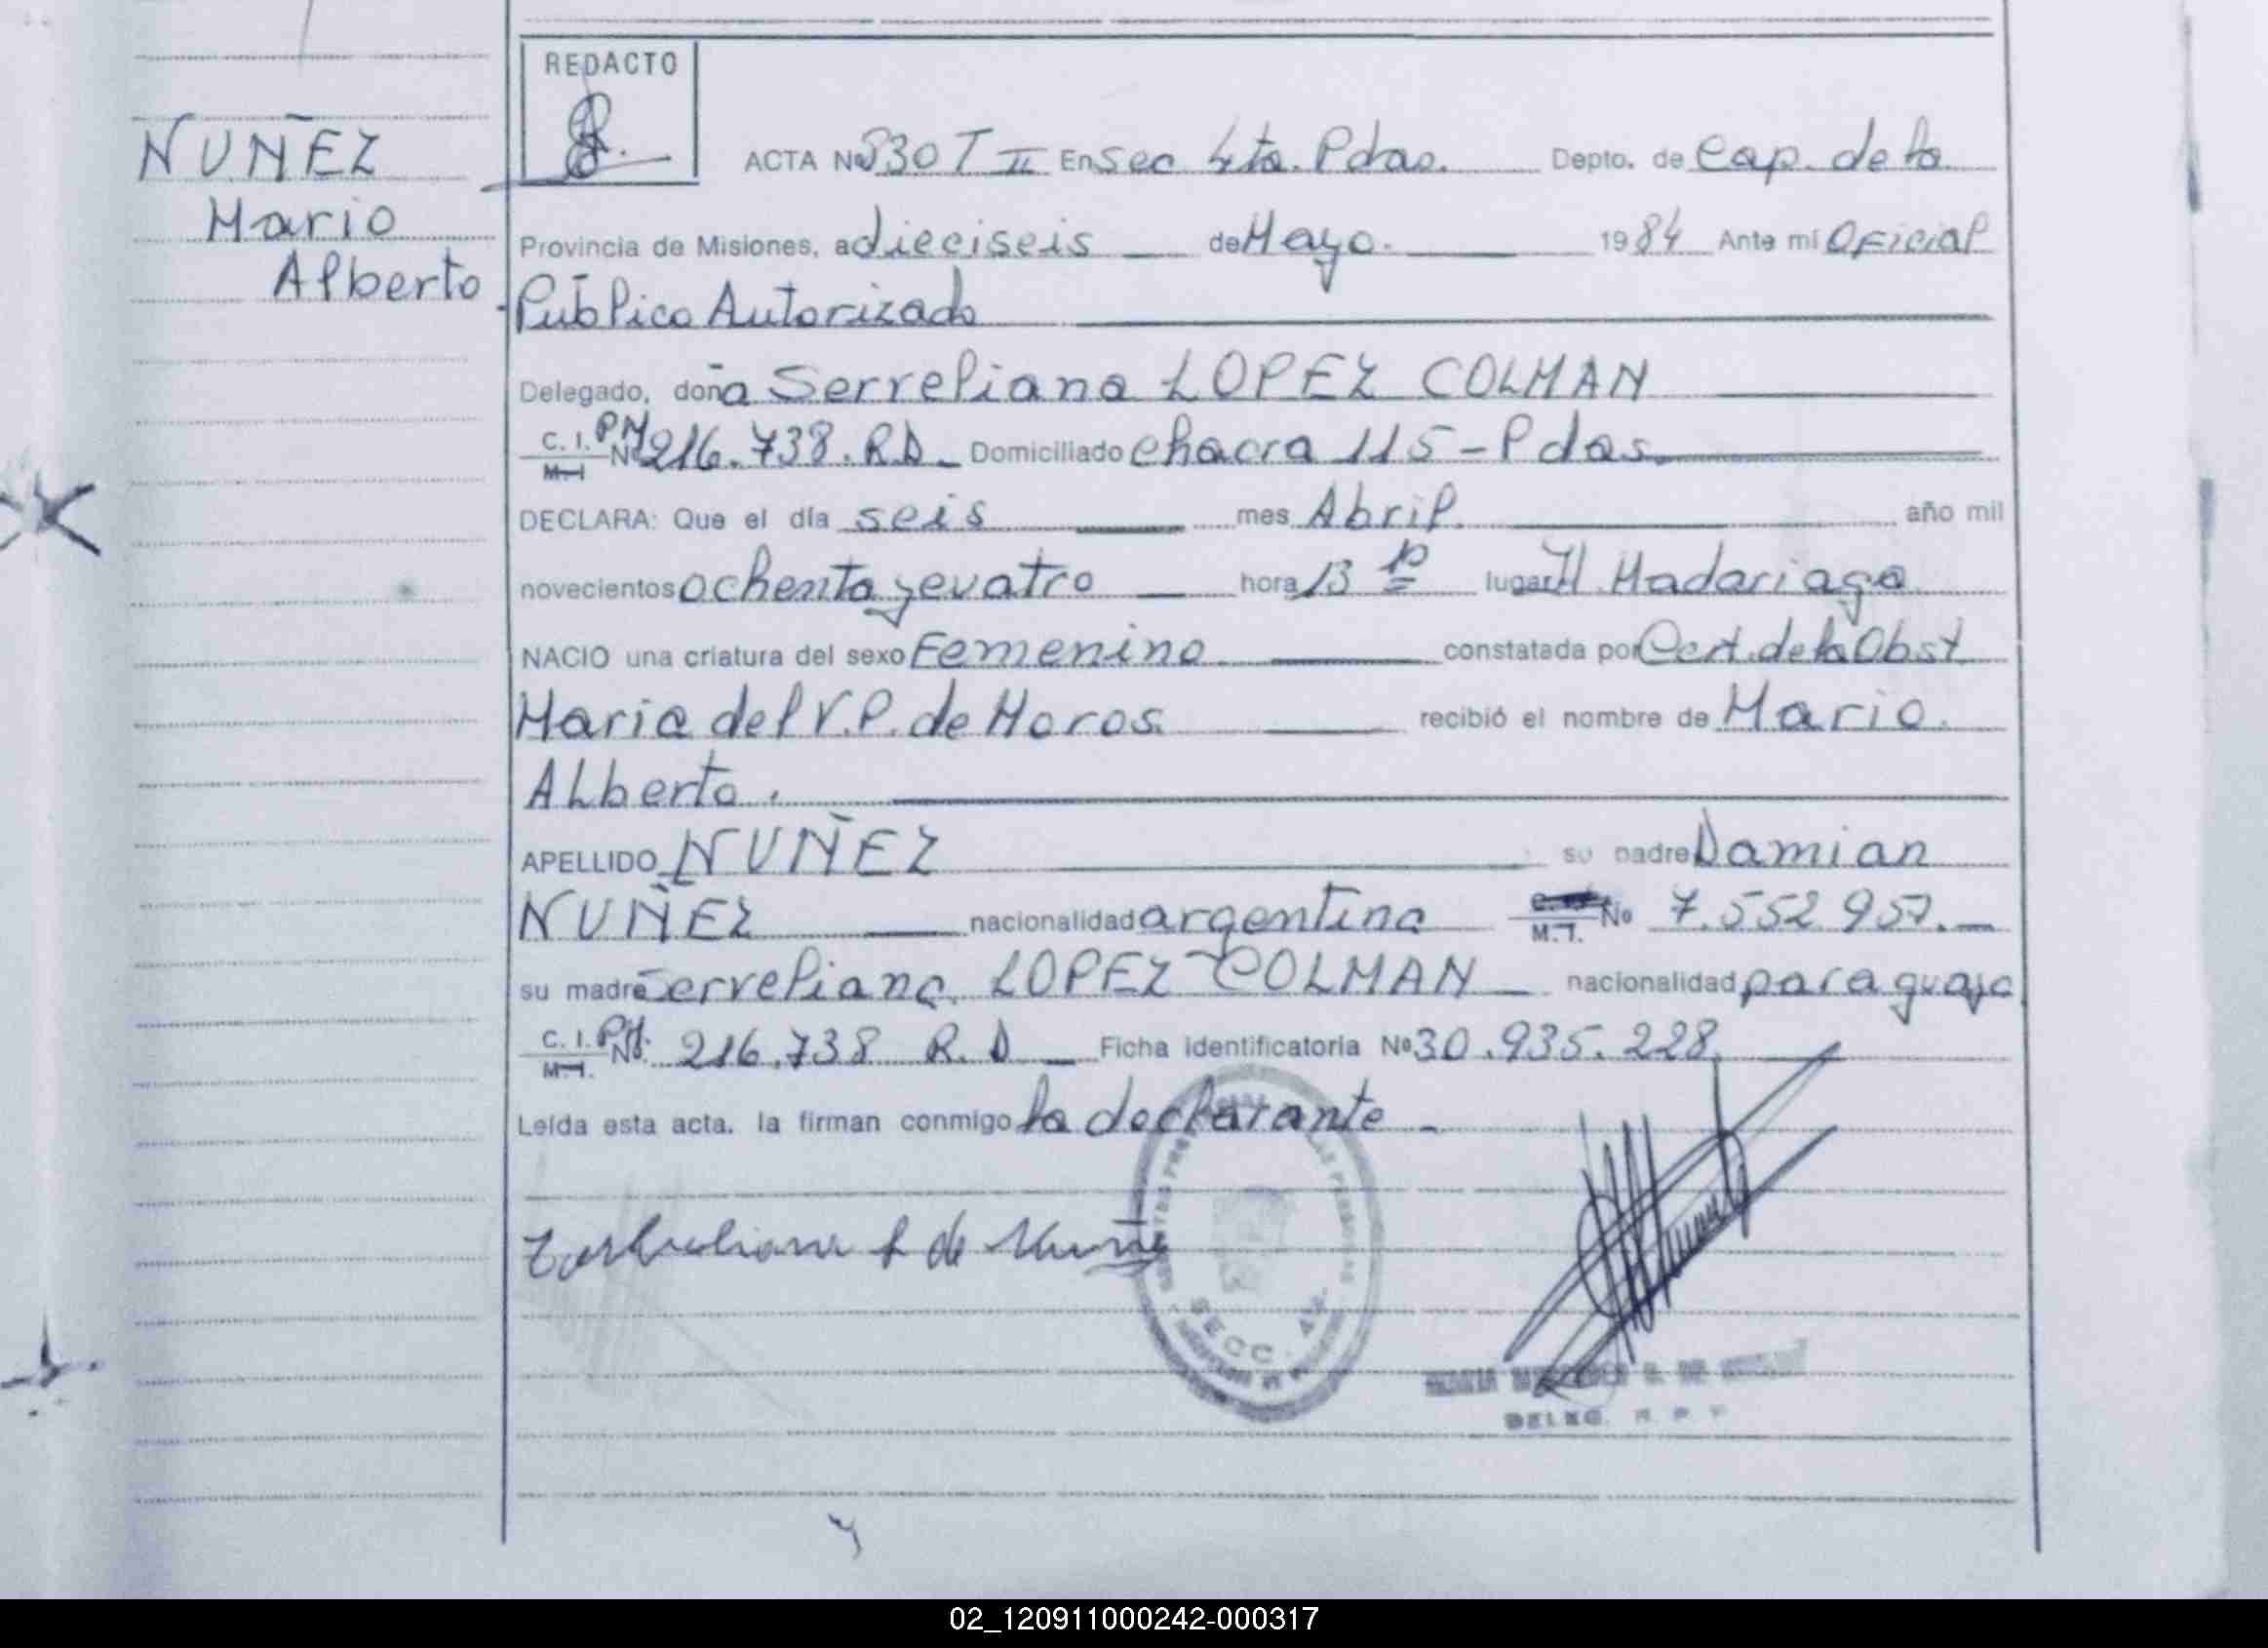 REDACTO
NUÑEZ
Mario
Alberto
ACTA Nº 830 T II En Sec 4ta. Pdas. Depto. de Cap. de la
Provincia de Misiones, a dieciseis de Mayo. 1984 Ante mi Oficial
Público Autorizado
Delegado, doña Serreliana LOPEZ COLMAN
C. I. P.M Nº 216.738. R.D. Domiciliado chacra 115 - Pdas.
M.I
DECLARA: Que el día seis mes Abril. año mil
novecientos ochenta y cuatro hora 13 lugar H. Madariaga
NACIO una criatura del sexo Femenino constatada por Cert. de la Obst
Maria del V.P. de Moros. recibió el nombre de Mario.
Alberto.
APELLIDO NUÑEZ su padre Damian
NUÑEZ nacionalidad argentina M.I. Nº 7.552.957.
su madre Serreliana LOPEZ COLMAN nacionalidad paraguaya
C. I. P.M. Nº 216.738 R. D Ficha identificatoria Nº 30.935.228.
M.I.
Leída esta acta, la firman conmigo la declarante
de Nuñez
SECC. 4ta.
DELEG. R. P. P
02_120911000242-000317